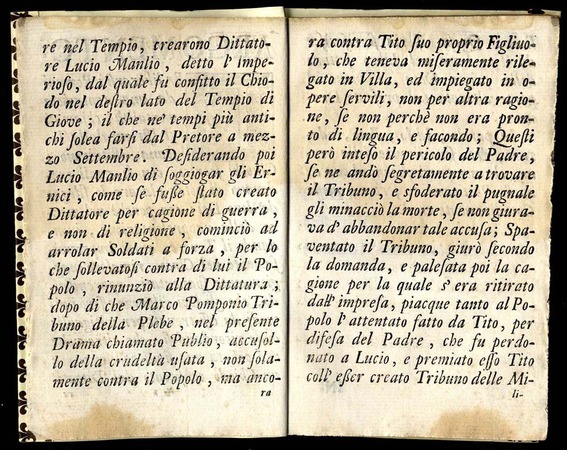 re nel Tempio, crearono Dittato-
re Lucio Manlio, detto l' impe-
rioso, dal quale fu confitto il Chio-
do nel destro lato del Tempio di
Giove; il che ne' tempi più anti-
chi solea farsi dal Pretore a mez-
zo Settembre. Desiderando poi
Lucio Manlio di soggiogar gli Er-
nici, come se fusse stato creato
Dittatore per cagione di guerra,
e non di religione, cominciò ad
arrolar Soldati a forza, per lo
che sollevatosi contra di lui il Po-
polo, rinunziò alla Dittatura;
dopo di che Marco Pomponio Tri-
buno della Plebe, nel presente
Drama chiamato Publio, accusol-
lo della crudeltà usata, non sola-
mente contra il Popolo, ma anco-
ra
ra contra Tito suo proprio Figliuo-
lo, che teneva miseramente rile-
gato in Villa, ed impiegato in o-
pere servili, non per altra ragio-
ne, se non perchè non era pron-
to di lingua, e facondo; Questi
però inteso il pericolo del Padre,
se ne andò segretamente a trovare
il Tribuno, e sfoderato il pugnale
gli minacciò la morte, se non giura-
va d' abbandonar tale accusa; Spa-
ventato il Tribuno, giurò secondo
la domanda, e palesata poi la ca-
gione per la quale s' era ritirato
dall' impresa, piacque tanto al Po-
polo l' attentato fatto da Tito, per
difesa del Padre, che fu perdo-
nato a Lucio, e premiato esso Tito
coll' esser creato Tribuno delle Mi-
li-